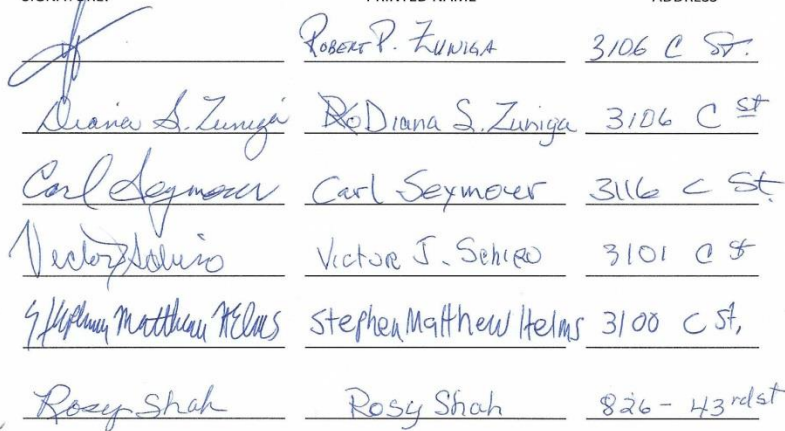 SIGNATURE: PRINTED NAME ADDRESS
ROBERT P. ZUNIGA 3106 C ST.
Diana S. Zuniga Diana S. Zuniga 3106 C st
Carl Seymour Carl Seymour 3116 C St.
Victor J. Schiro 3101 C St
Stephen Matthew Helms Stephen Matthew Helms 3100 C St.
Rosy Shah Rosy Shah 826 - 43rd st